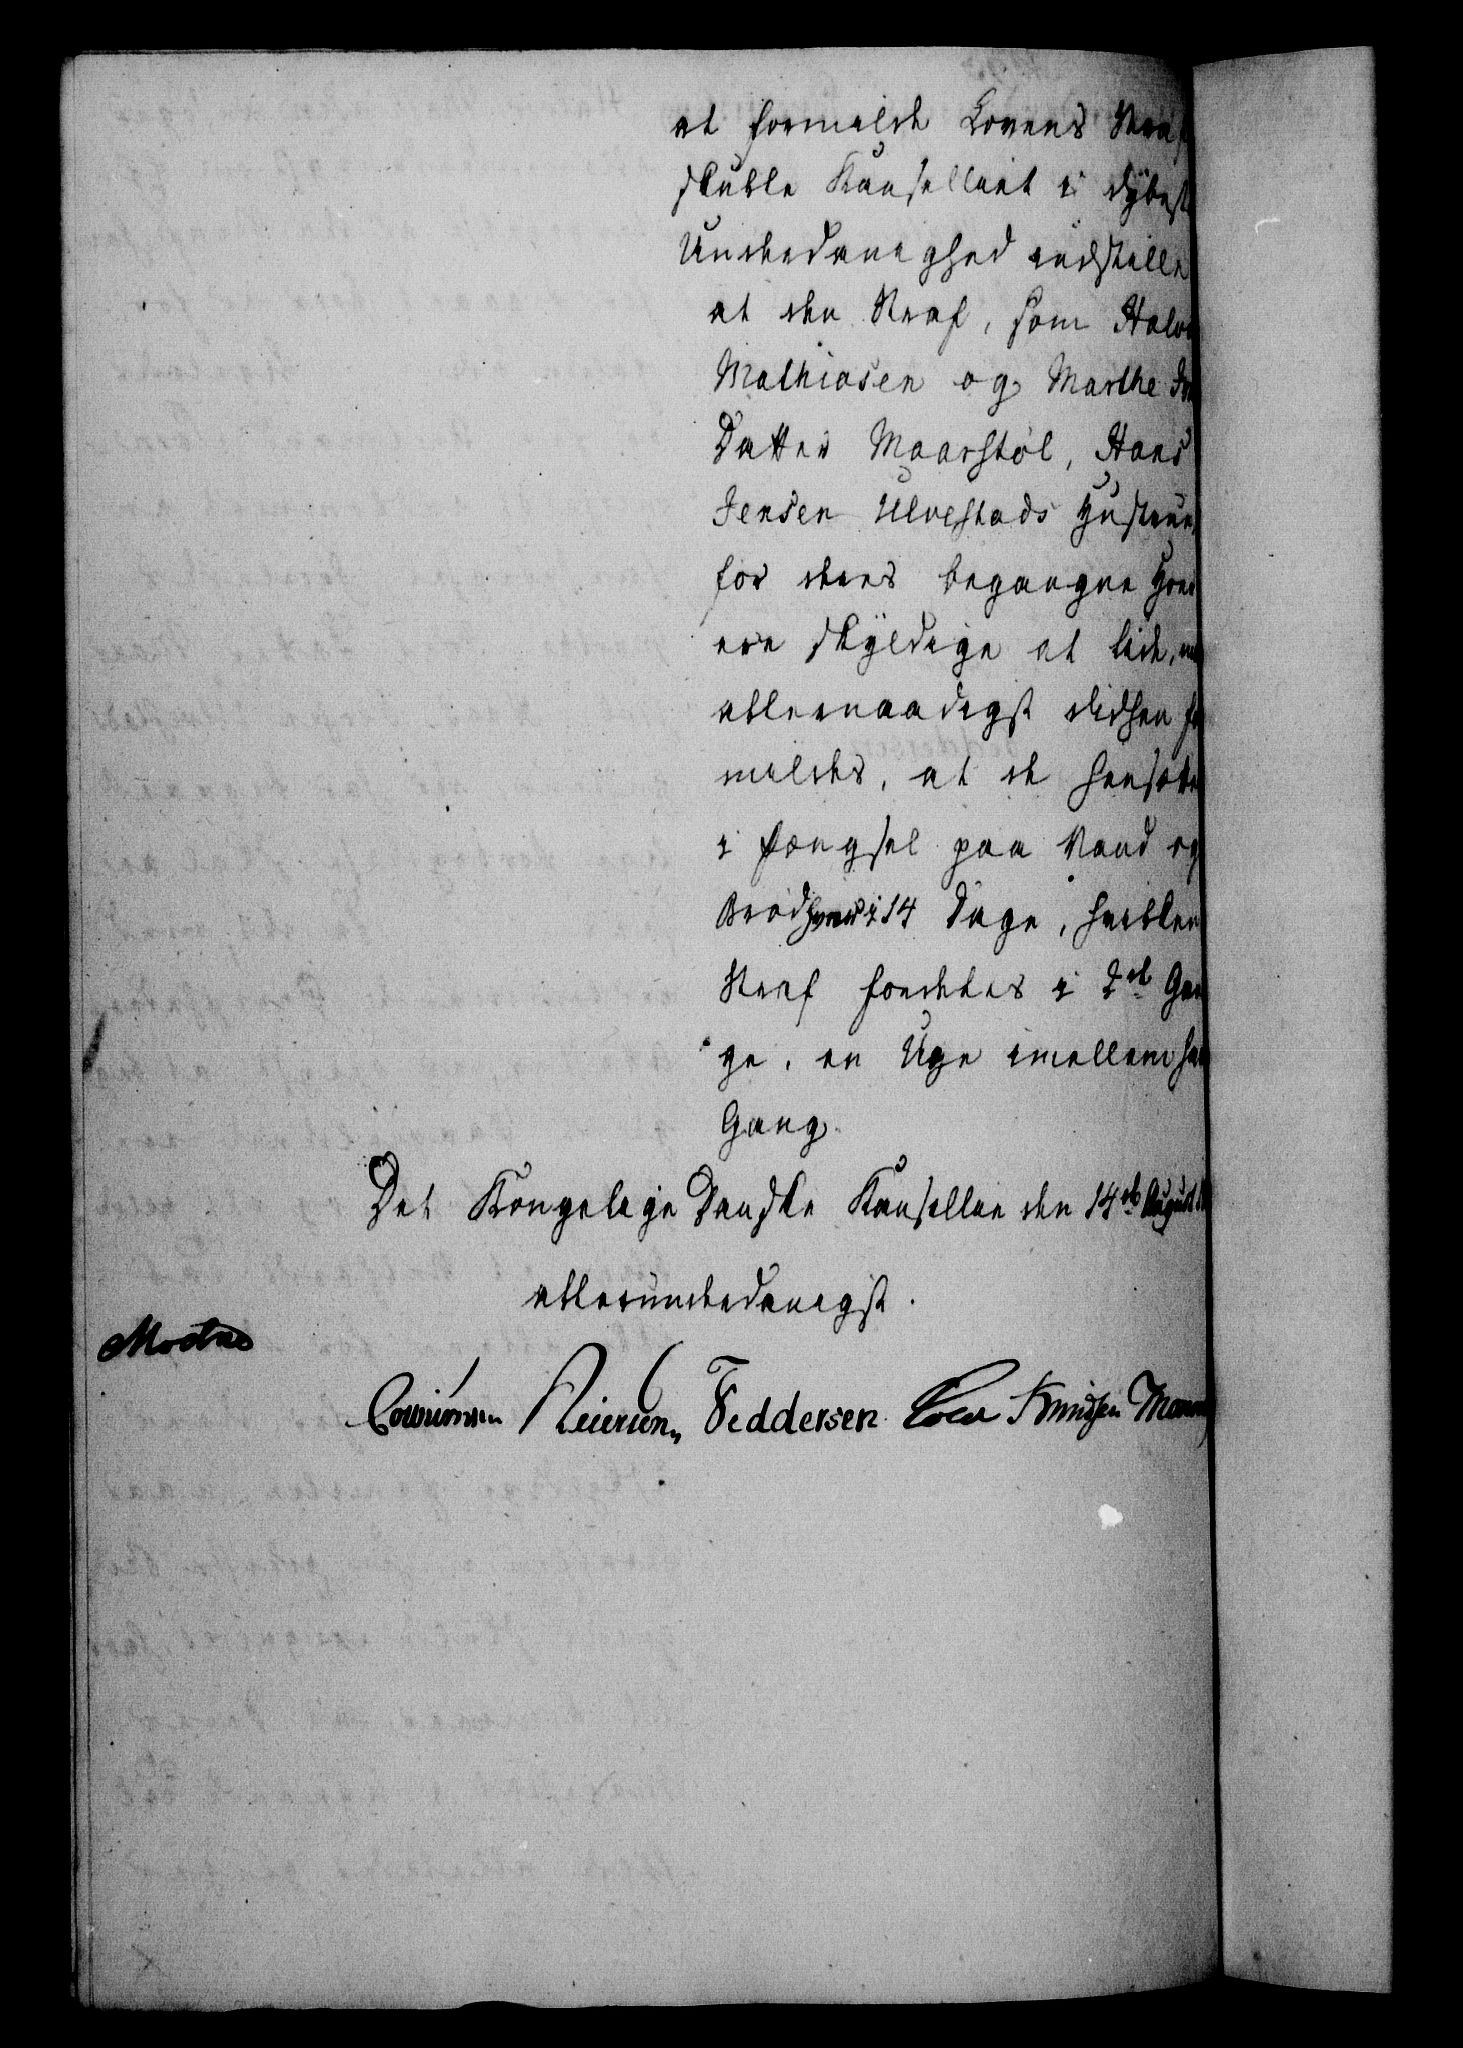 at formilde Lovens Straf
skulle Kanselliet i dybest
Underdanighed indstille
at den Straf, som Halvo
Mathiasen og Marthe
Datter Maarstøl, Hans
Jensen Ulvestads Hustrue
for deres begangne Hoer
ere skyldige at lide, m
allernaadigst didhen fo
mildes, at de hensætte
i Fængsel paa Vand og
Brød hver i 14 Dage, hvilken
Straf fordeles i 2de Gan
ge, en Uge imellem hve
Gang.
Det Kongelige Danske Kansellie den 14de August
allerunderdanigst.
Cowsumsen Reiersen, Feddersen Cold Knudsen